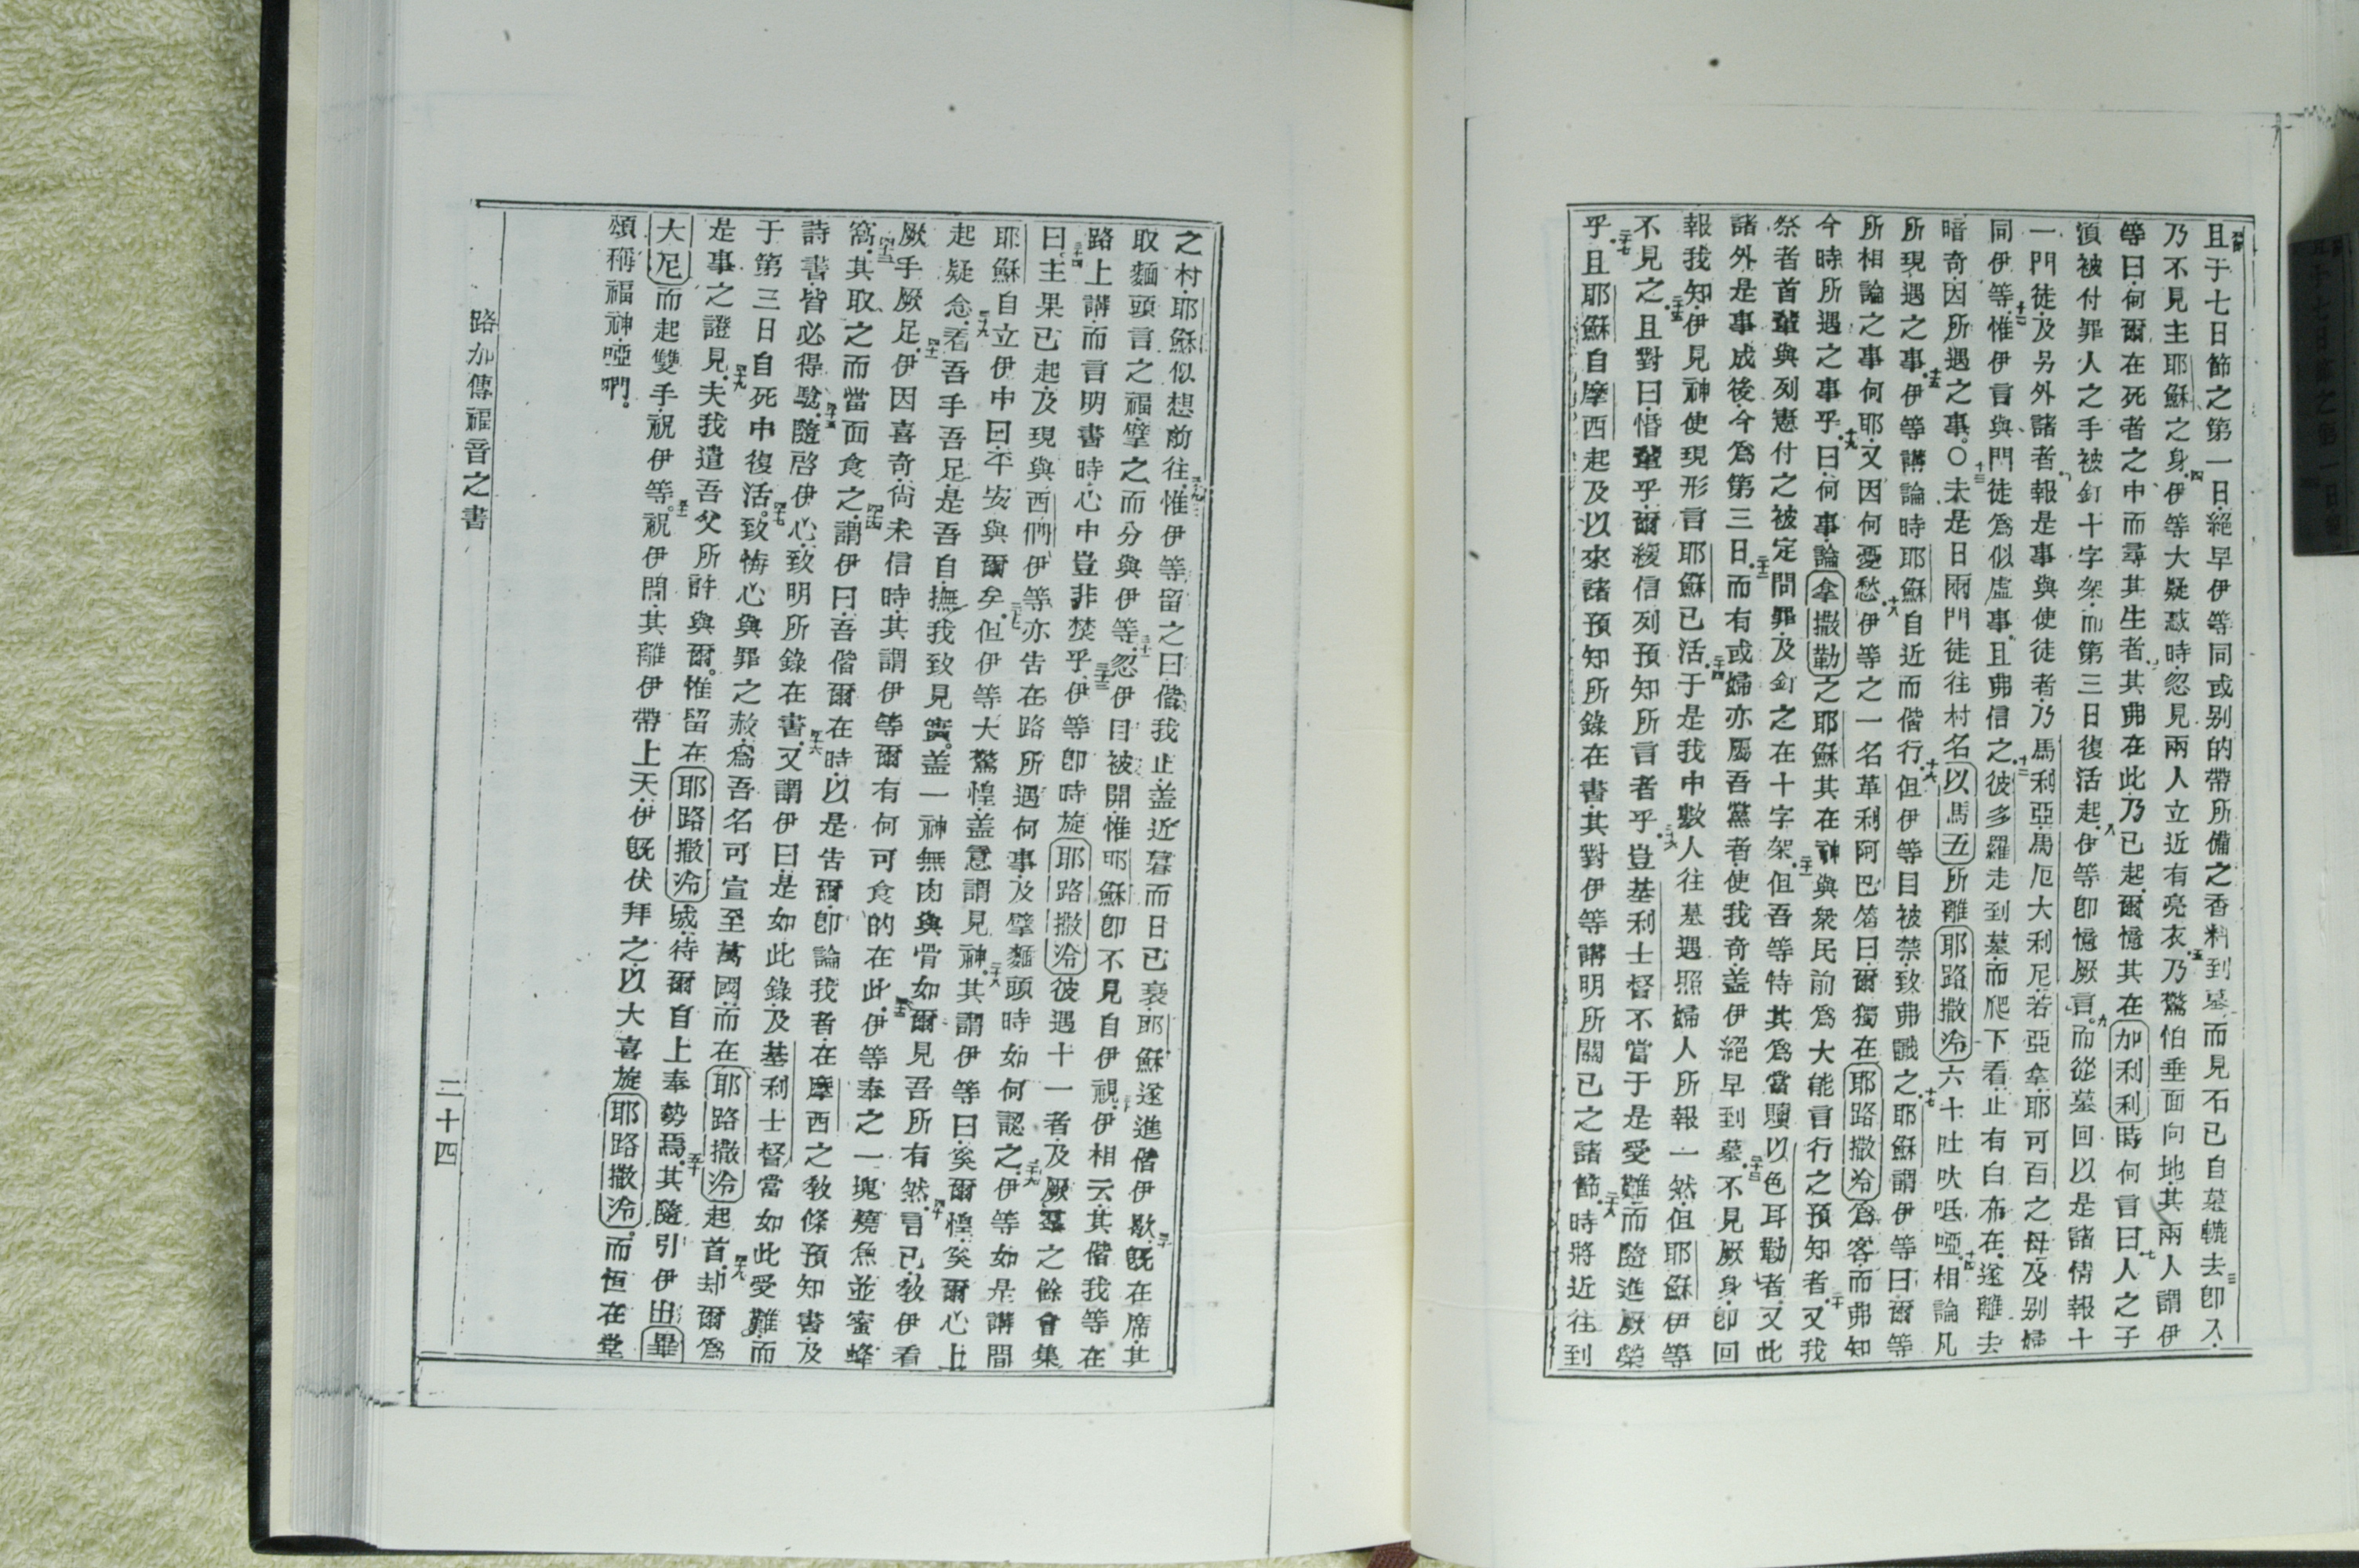 且于七日節之第一日絕早伊等同或别的帶所備之香料到墓而見石已自墓轆去三即入
乃不見主耶穌之身四伊等大疑惑時忽見兩人立近有亮衣五乃驚怕垂面向地其兩人謂伊
等曰何爾在死者之中而尋其生者六其弗在此乃已起爾憶其在加利利時何言曰七人之子
須被付罪人之手被釘十字架而第三日復活起八伊等卽憶厥言九而從墓回以是諸情報十
一門徒及另外諸者報是事與使徒者乃馬利亞馬厄大利尼若亞拿耶可百之母及别婦
同伊等十一惟伊言與門徒為似虛事且弗信之十二彼多羅走到墓而爬下看止有白布在遂離去
暗奇因所遇之事〇十三夫是日兩門徒往村名以馬五所離耶路撒冷六十吐呔哌啞十四相論凡
所現遇之事十五伊等講論時耶穌自近而偕行十六但伊等目被禁致弗識之十七耶穌謂伊等曰爾等
所相論之事何耶又因何憂愁十八伊等之一名革利阿巴答曰爾獨在耶路撒冷為客而弗知
今時所遇之事乎十九曰何事論拿撒勒之耶穌其在神與衆民前為大能言行之預知者二十又我
祭者首輩與列憲付之被定問罪及釘之在十字架二十一但吾等特其為當贖以色耳勒者又此
諸外是事成後今為第三日二十二而有或婦亦屬吾黨者使我奇蓋伊絕早到墓二十三不見厥身卽回
報我知伊見神使現形言耶穌已活二十四于是我中數人往墓遇照婦人所報一然但耶穌伊等
不見之二十五且對曰惛輩乎爾緩信列預知所言者乎二十六豈基利士督不當于是受難而隨進厥榮
乎二十七且耶穌自摩西起及以來諸預知所錄在書其對伊等講明所關己之諸節二十八時將近往到
之村耶穌似想前往二十九惟伊等留之曰偕我止蓋近暮而日已衰耶穌遂進偕伊歇三十旣在席其
取麵頭言之福擘之而分與伊等三十一忽伊目被開惟耶穌卽不見自伊視三十二伊相云其偕我等在
路上講而言明書時心中豈非焚乎三十三伊等卽時旋耶路撒冷彼遇十一者及厥羣之餘會集
曰三十四主果已起及現與西們三十五伊等亦告在路所遇何事及擘麵頭時如何認之三十六伊等如是講間
耶穌自立伊中曰平安與爾矣三十七但伊等大驚惶蓋意謂見神三十八其謂伊等曰奚爾惶奚爾心上
起疑念三十九看吾手吾足是吾自撫我致見實蓋一神無肉與骨如爾見吾所有然四十言已敎伊看
厥手厥足四十一伊因喜奇尙未信時其謂伊等爾有何可食的在此四十二伊等奉之一塊燒魚並蜜蜂
窩四十三其取之而當面食之四十四謂伊曰吾偕爾在時以是告爾卽論我者在摩西之敎條預知書及
詩書皆必得騐四十五隨啓伊心致明所錄在書四十六又謂伊曰是如此錄及基利士督當如此受難而
于第三日自死中復活四十七致悔心與罪之赦爲吾名可宣至萬國而在耶路撒冷起首四十八却爾爲
是事之證見四十九夫我遣吾父所許與爾惟留在耶路撒冷城待爾自上奉勢焉五十其隨引伊出畢
大尼而起雙手祝伊等五十一祝伊間其離伊帶上天伊旣伏拜之以大喜旋耶路撒冷而恒在堂
頌稱福神啞啊
路加傳福音之書
二十四